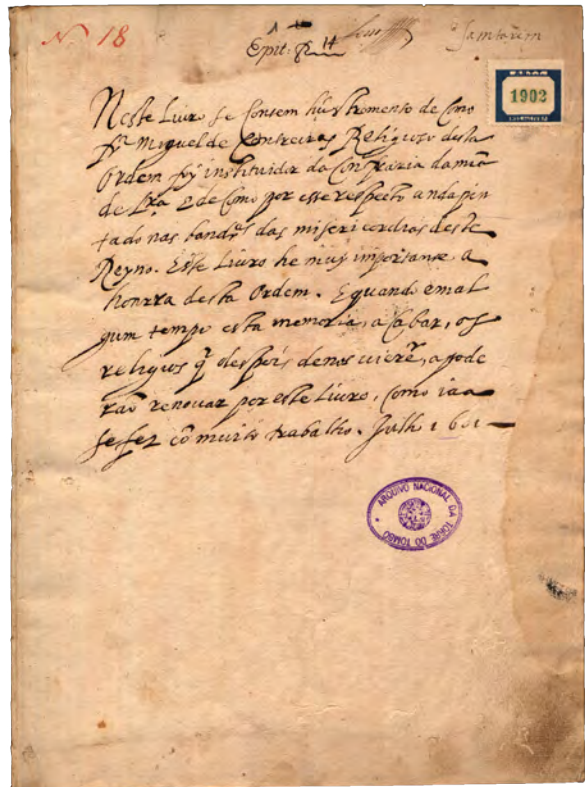 Nº 18
Epit. 14
Santarem
1903
Neste Liuro se Contem hũ stromento de Como
fr Miguel de Contreiras Religioso desta
Ordem foy instituidor da Confraria da miã
de Lxa, e de Como por esse respecto anda pin
tado nas bandrãs das misericordias deste
Reyno. Este Liuro he muy importante a
honrra desta Ordem. E quando em al
gum tempo esta memoria, acabar, os
religiosos q̃ despois de nos uierẽ, a pode
rão renouar por este Liuro, Como iaa
se fez cõ muito trabalho. Julh
ARQUIVO NACIONAL DA TORRE DO TOMBO